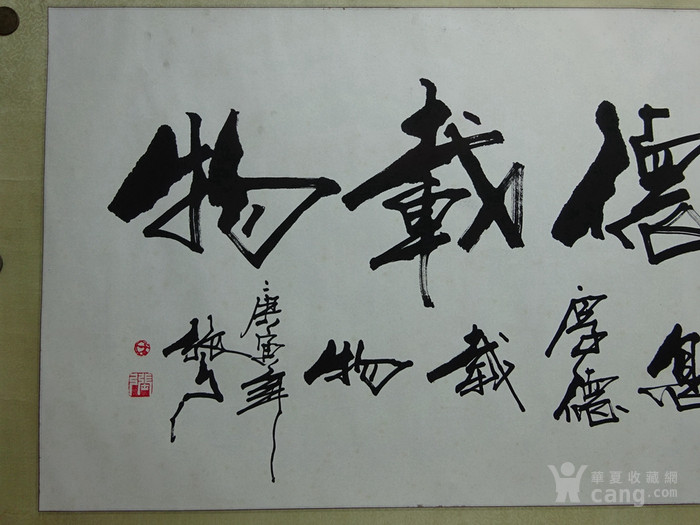 德載物
息厚德載物
庚寅年
華夏收藏網
cang.com